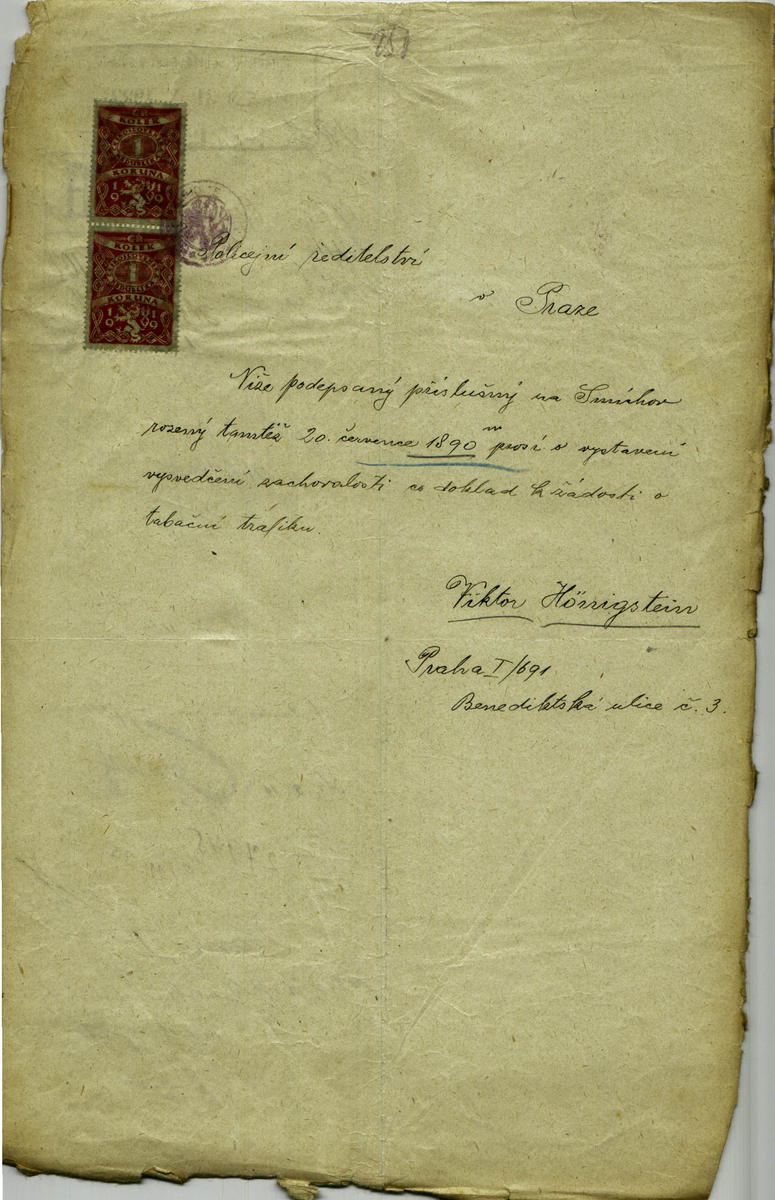 KOLEK
ČESKOSLOVENSKÁ
1
REPUBLIKA
KORUNA
19 19
KOLEK
1
KORUNA
19 19
Policejní ředitelství
v Praze
Níže podepsaný příslušný na Smíchov
rozený tamtéž 20. července 1890 prosí o vystavení
vysvedčení zachovalosti co doklad k žádosti o
tabační trafiku.
Viktor Hönigstein
Praha I/691
Benediktská ulice č. 3.